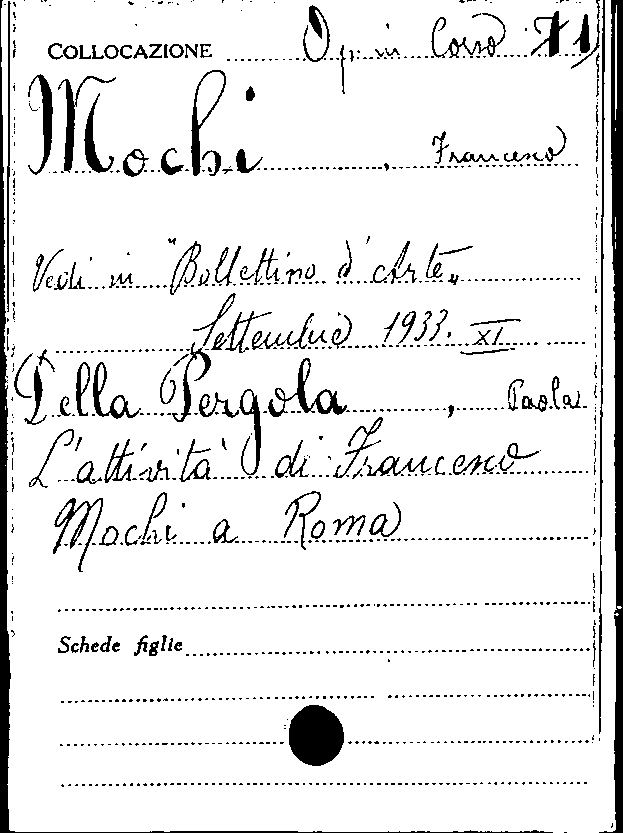 COLLOCAZIONE Op. in Corso 71
Mochi, Francesco
Vedi in "Bollettino d'Arte"
Settembre 1933. XI
Della Pergola, Paola
L'attività di Francesco
Mochi a Roma
Schede figlie